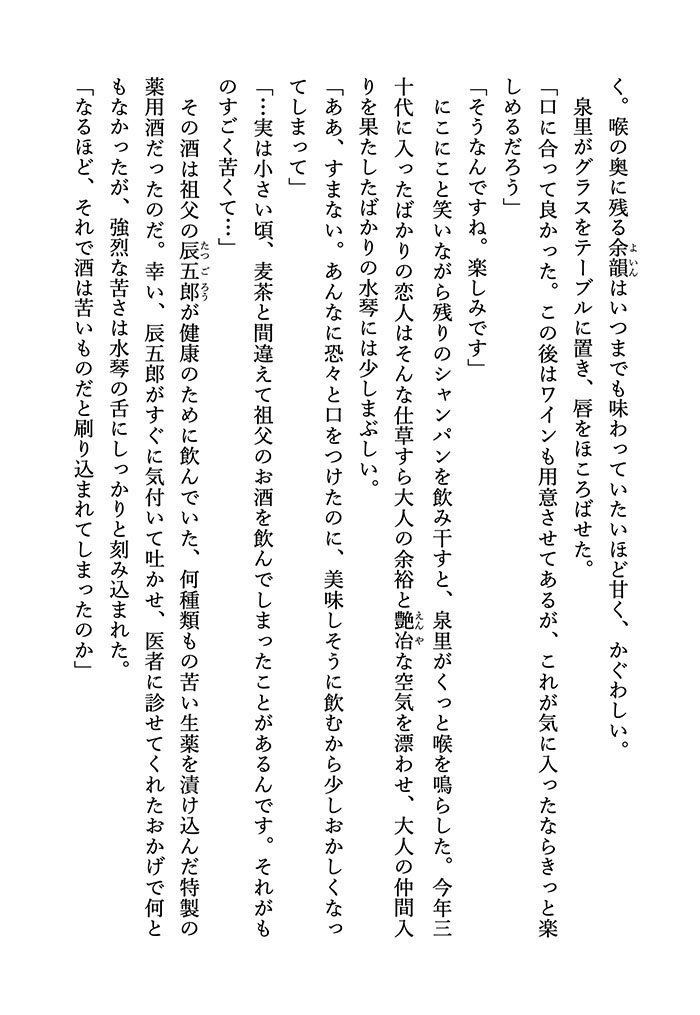 く。喉の奥に残る余韻はいつまでも味わっていたいほど甘く、かぐわしい。
　泉里がグラスをテーブルに置き、唇をほころばせた。
「口に合って良かった。この後はワインも用意させてあるが、これが気に入ったならきっと楽
しめるだろう」
「そうなんですね。楽しみです」
　にこにこと笑いながら残りのシャンパンを飲み干すと、泉里がくっと喉を鳴らした。今年三
十代に入ったばかりの恋人はそんな仕草すら大人の余裕と艶冶な空気を漂わせ、大人の仲間入
りを果たしたばかりの水琴には少しまぶしい。
「ああ、すまない。あんなに恐々と口をつけたのに、美味しそうに飲むから少しおかしくなっ
てしまって」
「…実は小さい頃、麦茶と間違えて祖父のお酒を飲んでしまったことがあるんです。それがも
のすごく苦くて…」
　その酒は祖父の辰五郎が健康のために飲んでいた、何種類もの苦い生薬を漬け込んだ特製の
薬用酒だったのだ。幸い、辰五郎がすぐに気付いて吐かせ、医者に診せてくれたおかげで何と
もなかったが、強烈な苦さは水琴の舌にしっかりと刻み込まれた。
「なるほど、それで酒は苦いものだと刷り込まれてしまったのか」
よいん
えんや
たつごろう